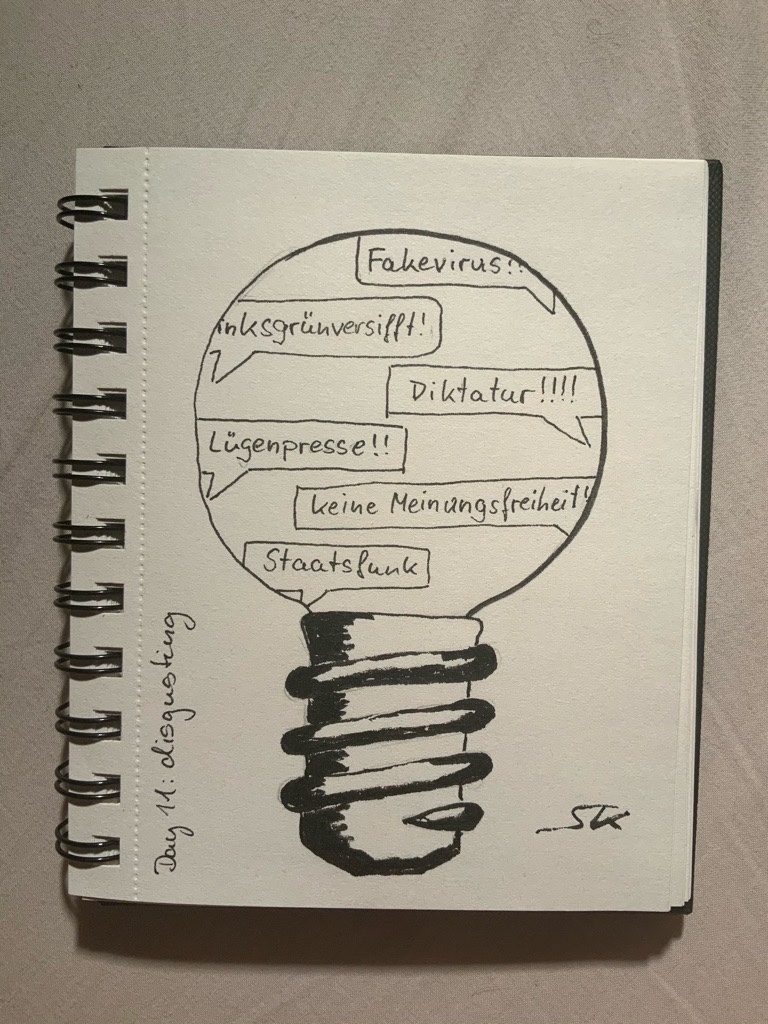 Fakevirus!!
inksgrünversifft!
Diktatur!!!!
Lügenpresse!!
keine Meinungsfreiheit!
Staatsfunk
Day 11: disgusting
SK